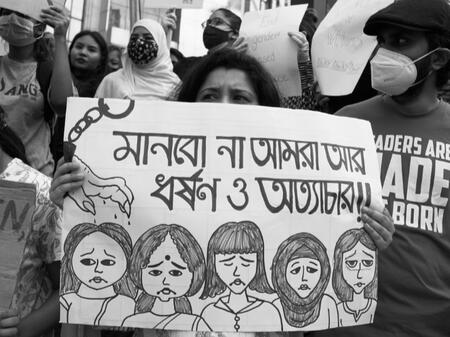 মানবো না আমরা আর
ধর্ষণ ও অত্যাচার!!
LEADERS ARE
MADE
BORN